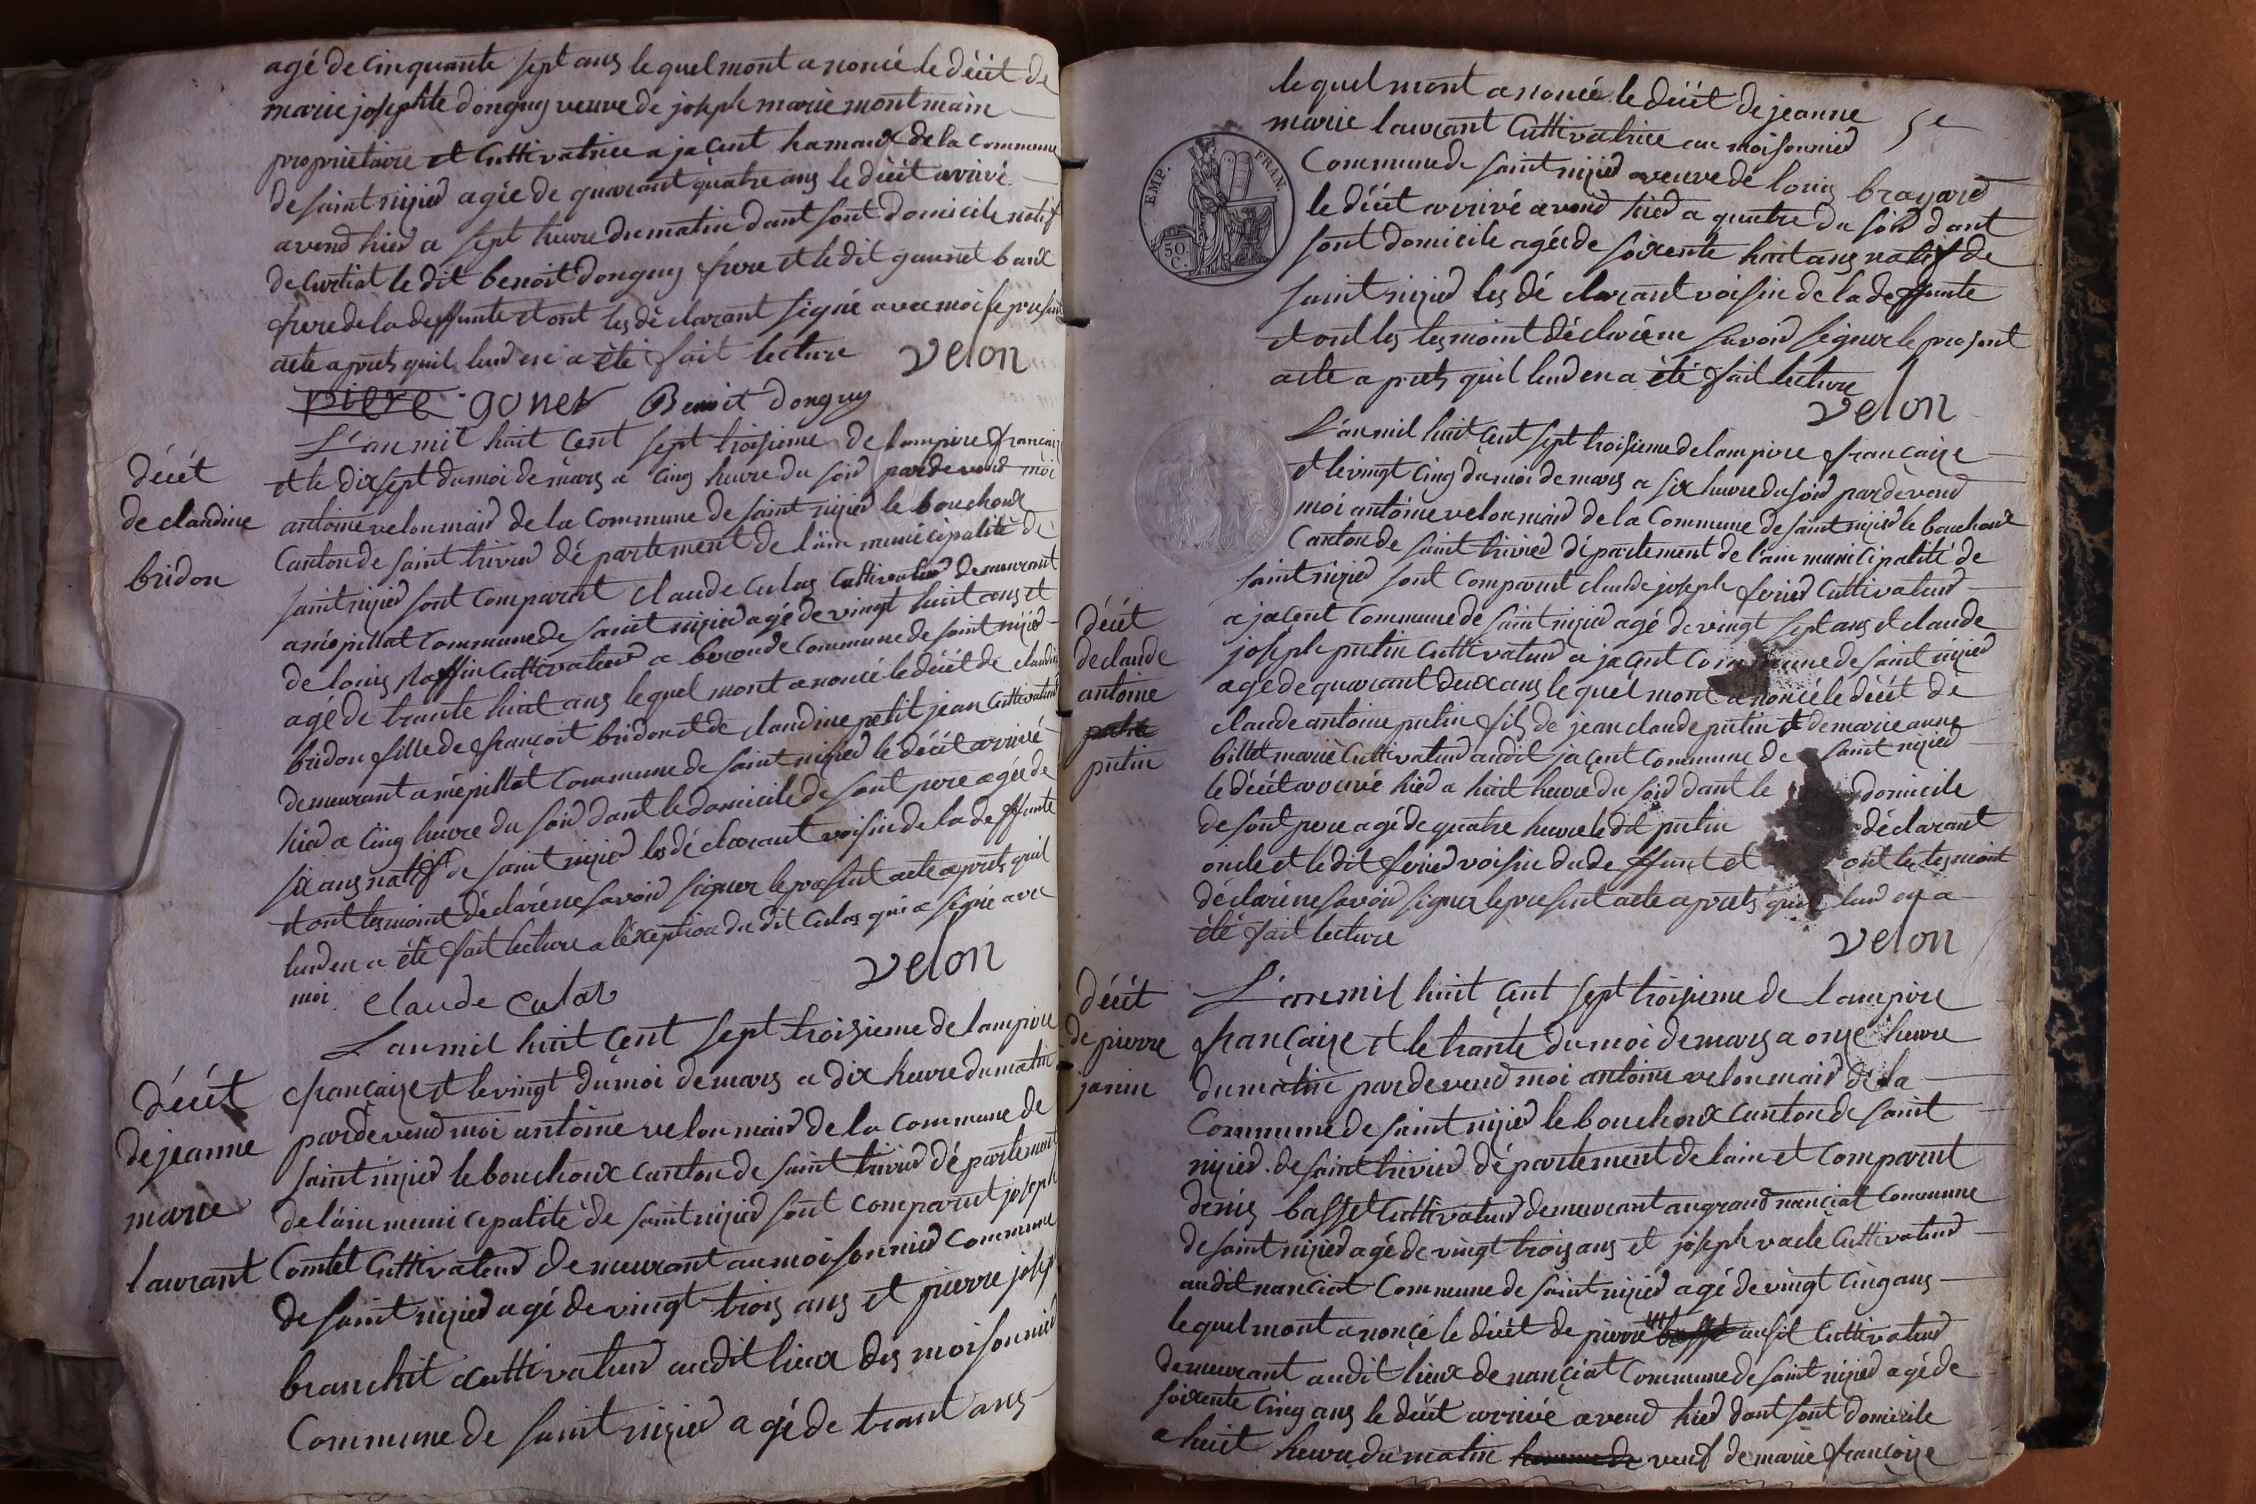 agé de Cinquante sept ans lequel mont anoncé le décét de
marie josephte donguy veuve de joseph marie montmain
propriétaire et Cultivatrice a jaçent hamaux de la Commune
de saint nizied agée de quarant quatre ans le décét arrivé
avend hied a sept heure du matin dant sont domicile natif
de Curtiat le dit benoit donguy frere et le dit baux
frere de la deffunte et ont les déclarant signé avec moi le present
acte aprets quil leud en a été fait lecture
velon
piere goner Benoit donguy
L'an mil huit Cent sept troisieme de lampire français
et le dix sept du moi de mars a Cinq heure du soid pardevend moi
antoine velon maid de la Commune de saint nizied le bouchoux
Canton de saint trivied département de l'ain municipalité de
saint nizied sont Comparut Claude Culas Cultivateud demeurant
a mépillat Commune de saint nizied agé de vingt huit ans et
de louis Cultivateud a Commune de saint nizied
agé de trante huit ans lequel mont anoncé le décét de claudine
bridon fille de françoit bridon et de claudine petit jean Cultivateud
demeurant a mépillat Commune de saint nizied le décét arrivé
hied a Cinq heure du soid dant le domicile de sont pere agée de
six ans natif de saint nizied les déclarant voisin de la deffunte
et ont les moint déclaré ne savoid signer le present acte aprets quil
leud en a été fait lecture a l'éxeption du dit Culas qui a signé avec
moi
velon
claude culas
décét
de claudine
bridon
L'an mil huit Cent sept troisieme de lampire
française et le vingt du moi de mars a dix heure du matin
pardevend moi antoine velon maid de la Commune de
saint nizied le bouchoux Canton de saint trivied département
de l'ain municipalité de saint nizied sont Comparut joseph
Comtet Cultivateud demeurant au moisonnied Commune
de saint nizied agé de vingt trois ans et pierre josep
branchit Cultivateud audit lieux des moisonnied
Commune de saint nizied agé de trant ans
décét
de jeanne
marie
laurant
lequel mont anoncé le décét de jeanne
5e
marie laurant Cultivatrice au moisonnied
Commune de saint nizied veuve de louis brayard
le décét arrivé avend hied a quatre du soid dant
sont domicile agée de soixente huit ans natif de
saint nizied les déclarant voisin de la deffunte
et ont les tesmoint déclaré ne savoid signer le present
acte aprets quil leud en a été fait lecture
velon
EMP. FRAN.
50 C.
L'an mil huit Cent sept troisieme de lampire française
et le vingt Cinq du moi de mars a six heure du soid pardevend
moi antoine velon maid de la Commune de saint nizied le bouchoux
Canton de saint trivied département de l'ain municipalité de
saint nizied sont Comparut claude joseph feried Cultivateud
a jaçent Commune de saint nizied agé de vingt sept ans et claude
joseph putin Cultivateud a jaçent Commune de saint nizied
agé de quarant deux ans lequel mont anoncé le décét de
claude antoine putin fils de jean claude putin et de marie anne
billet marié Cultivateud audit jaçent Commune de saint nizied
le décét arrivé hied a huit heure du soid dant le domicile
de sont pere agé de quatre heure le dit putin déclarant
oncle et le dit feried voisin du deffunt et ont les tesmoint
déclaré ne savoid signer le present acte aprets quil leud en a
été fait lecture
velon
décét
de claude
antoine
putin
L'an mil huit Cent sept troisieme de lampire
française et le trante du moi de mars a onze heure
du matin pardevend moi antoine velon maid de la
Commune de saint nizied le bouchoux Canton de saint
nizied de saint trivied département de lain et Comparut
denis basset Cultivateud demeurant au grand nanciat Commune
de saint nizied agé de vingt trois ans et joseph vacle Cultivateud
audit nanciat Commune de saint nizied agé de vingt Cinq ans
lequel mont anoncé le décét de pierre basset ausit Cultivateud
demeurant audit lieux de nanciat Commune de saint nizied agé de
soixente Cinq ans le décét arrivé avend hied dant sont domicile
a huit heure du matin homme de veuf de marie françoise
décét
de pierre
janin